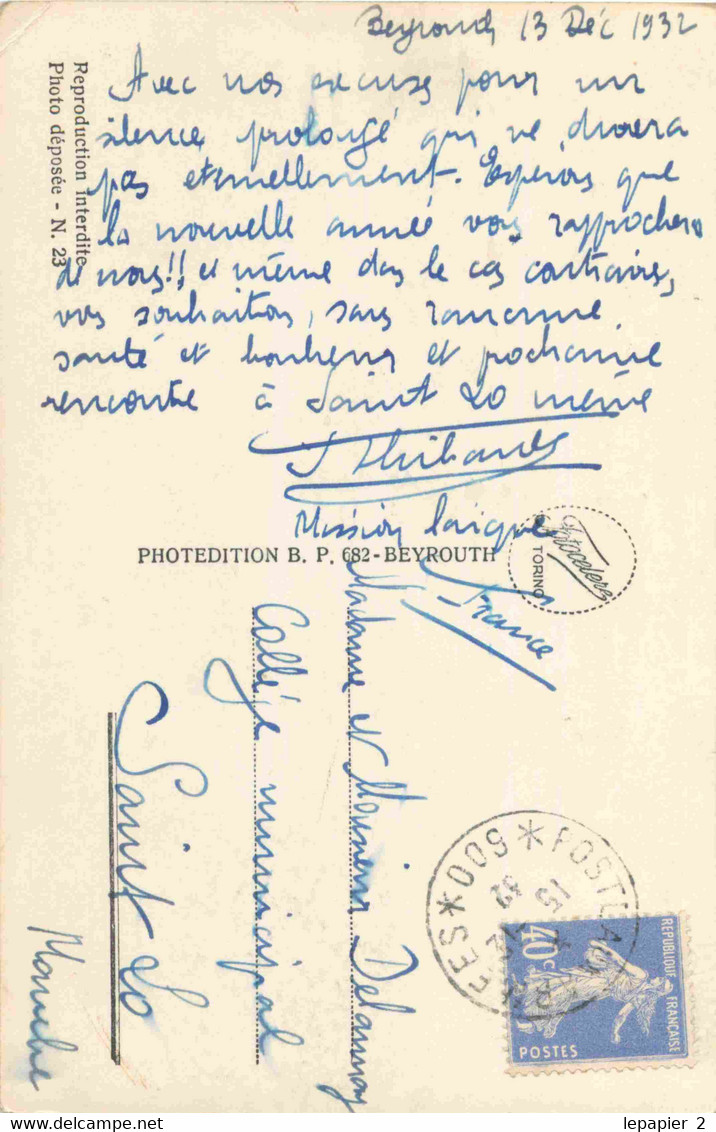 Beyrouth 13 Déc 1932
Avec nos excuses pour un
silence prolongé qui ne durera
pas eternellement. Esperons que
la nouvelle année vous rapprochera
de nous!!, et même dans le cas contraire,
vous souhaitons, sans rancune
santé et bonheur et prochaine
rencontre à Saint Lo même
Mission laïque
France
Reproduction interdite
Photo déposée - N. 23
PHOTEDITION B. P. 682-BEYROUTH
Fotocelere
TORINO
Madame et Monsieur Delaunay
Collège municipal
Saint Lo
Manche
POSTE AUX ARMEES * 600 *
15
12
32
REPUBLIQUE FRANÇAISE
40c
POSTES
lepapier 2